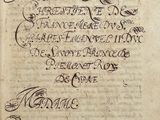 CHRESTIENE DE
FRANCE MERE DV S.
CHARLES EMANVEL II DVC
DE SAVOYE PRINCE DE
PIEMONT ROY
DE CYPRE
MADAME